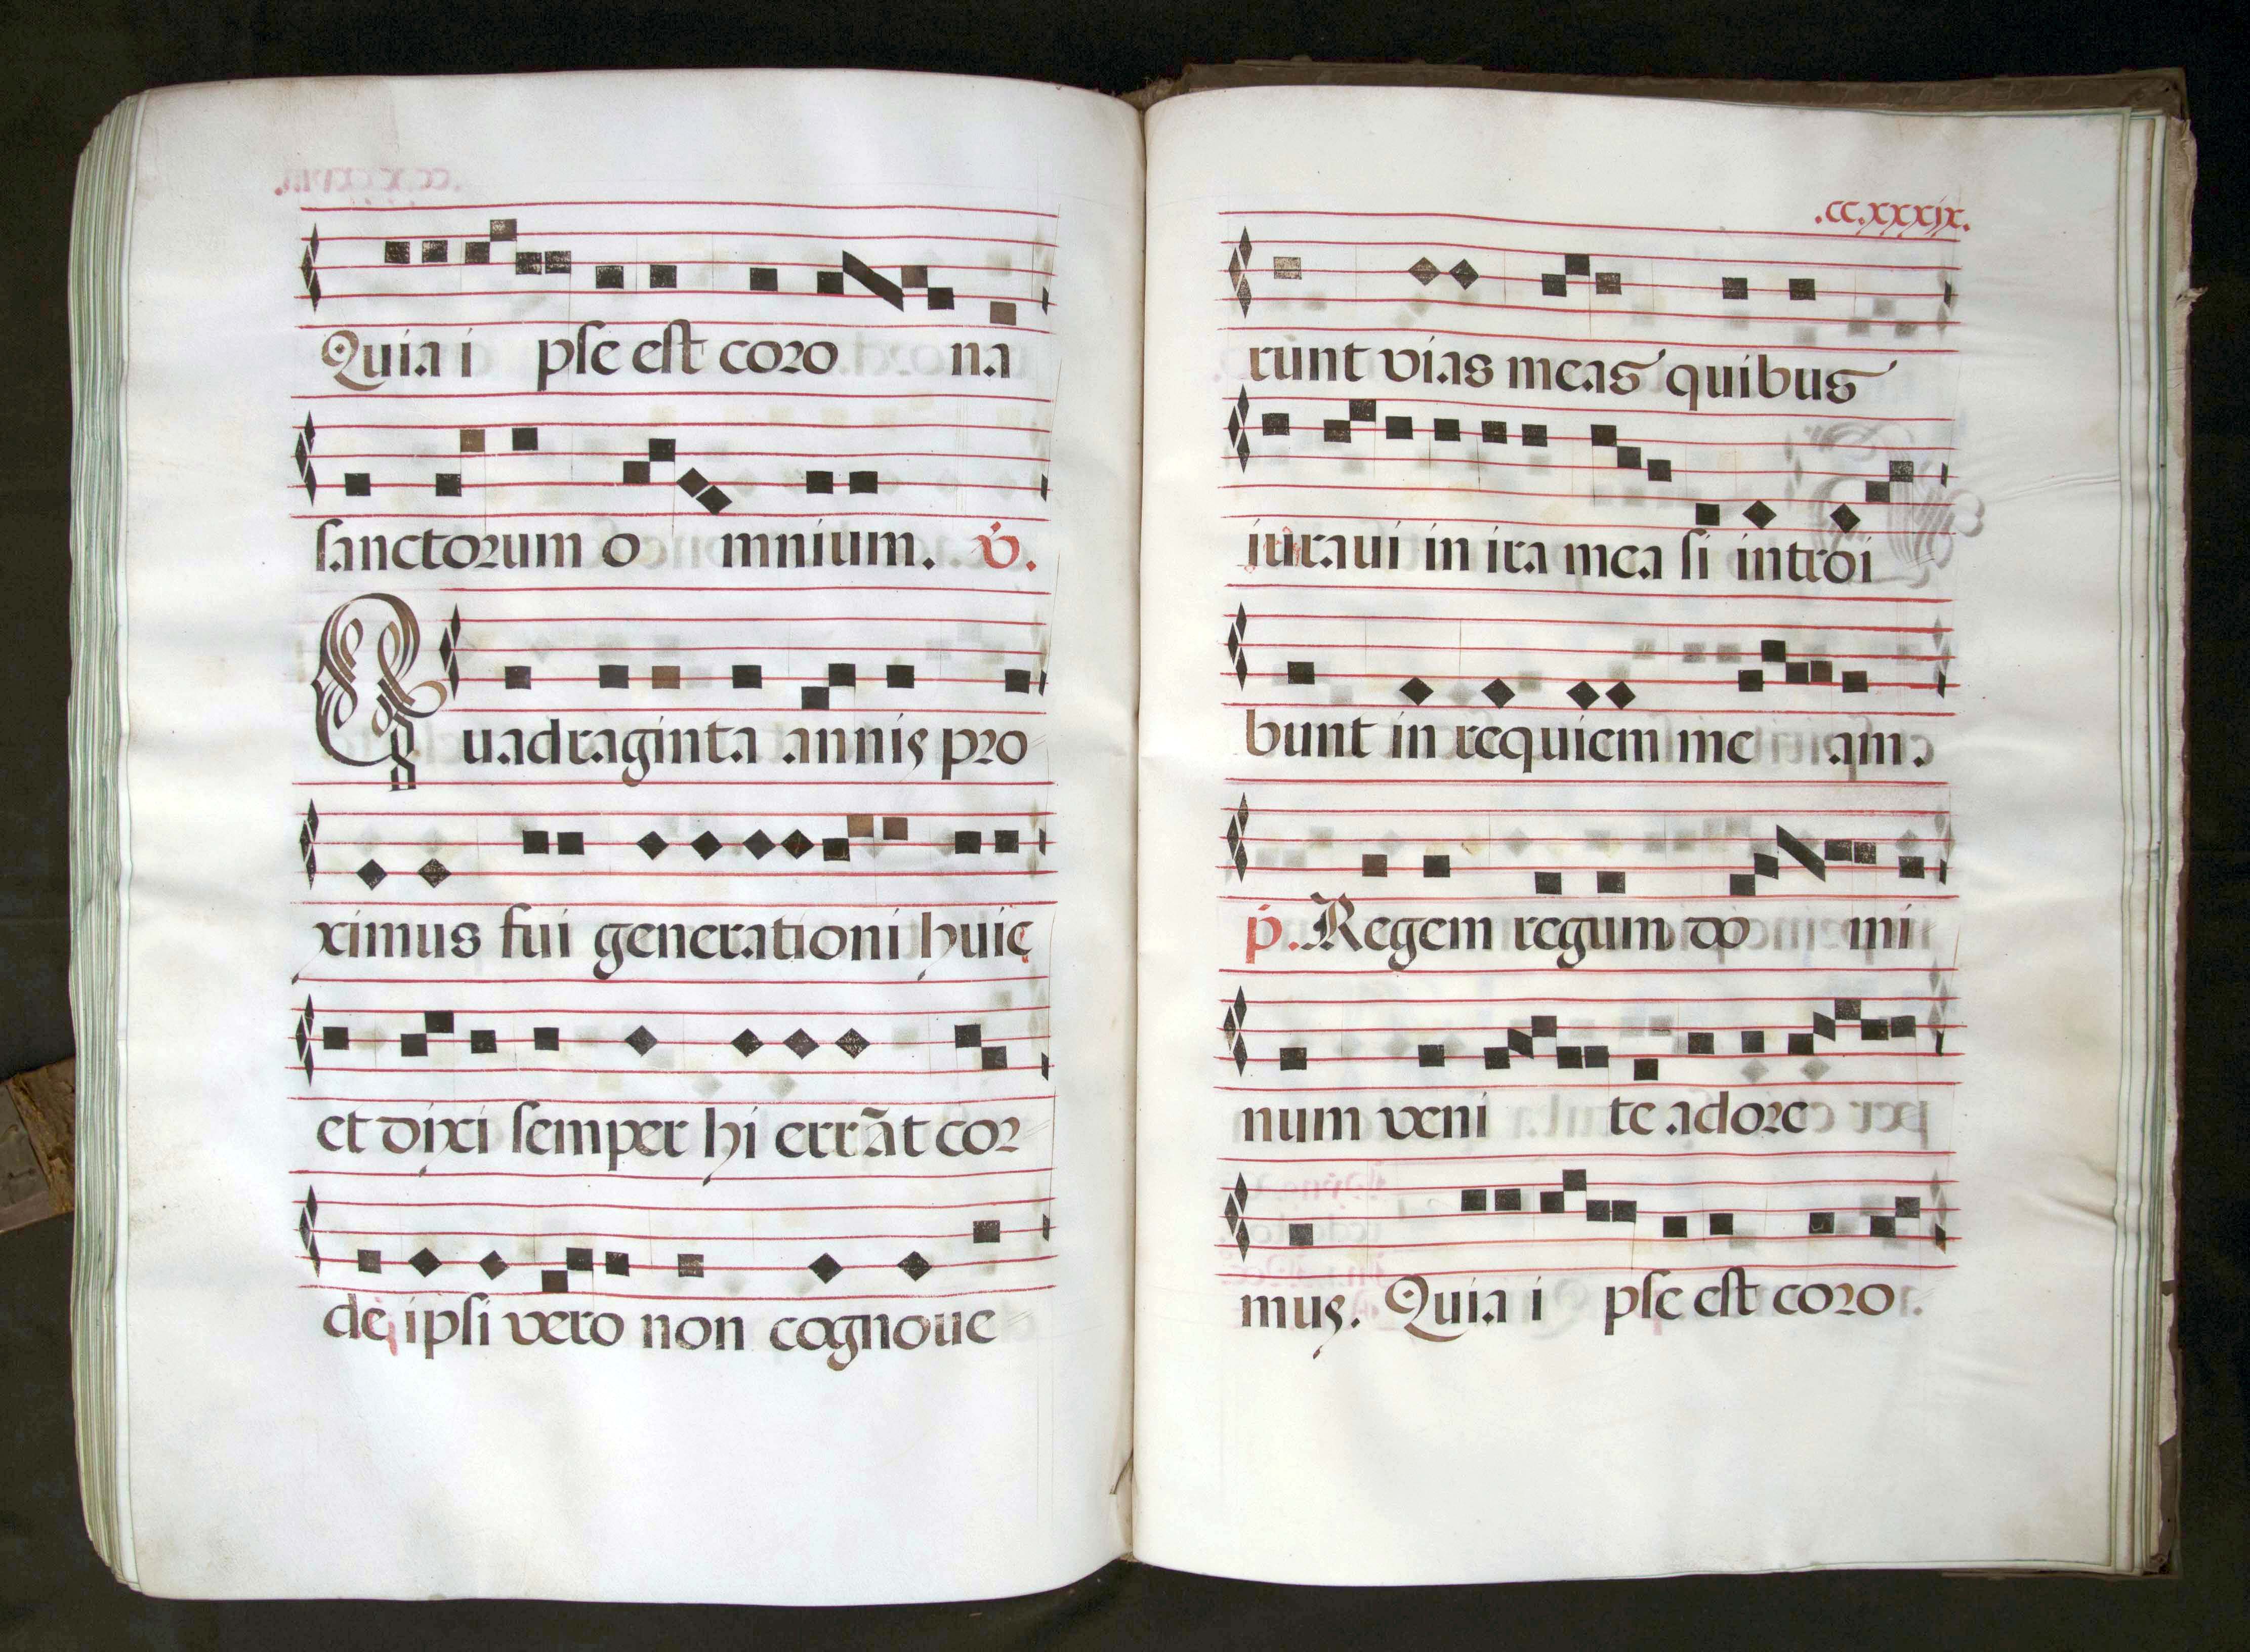 Quia i pse est coro na
sanctorum o mnium. v.
Quadraginta annis pro
ximus fui generationi huic
et dixi semper hi errãt cor
de, ipsi vero non cognoue
.cc.xxxix.
runt vias meas quibus
iuraui in ira mea si introi
bunt in requiem me am.
p. Regem regum do mi
num veni te adore
mus. Quia i pse est coro